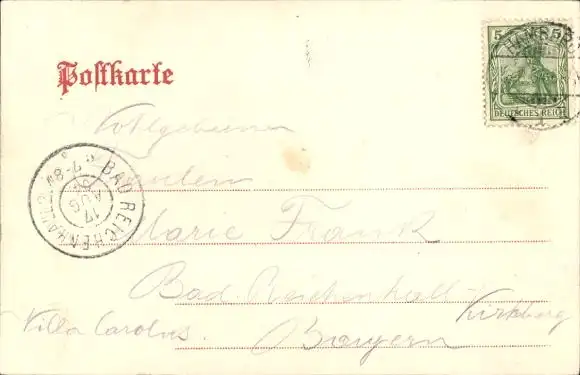 Postkarte
5 5
DEUTSCHES REICH
HAMBURG
1
BAD REICHENHALL 2
7-8
17 AUG
Fräulein
Marie Frank
Bad Reichenhall-
Kirchberg
Villa Carolus.
Bayern